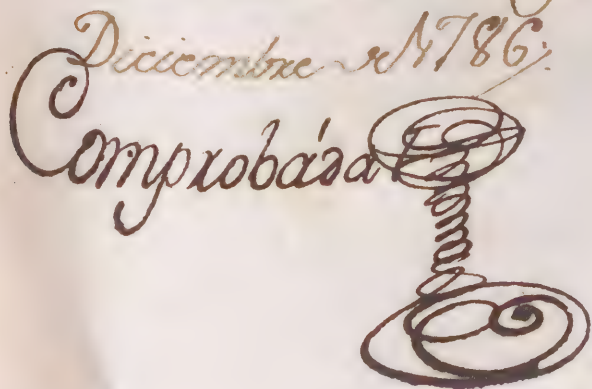 Diciembre de 1786.
Comprobáda